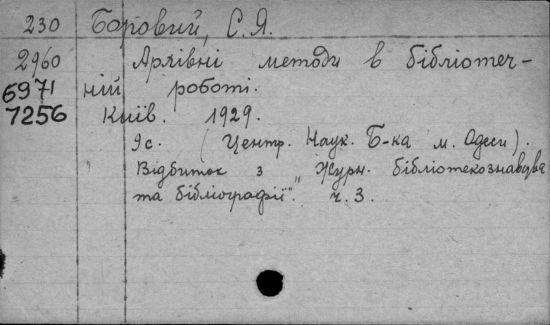 230 Боровий, С. Я.
2960 Архівні методи в бібліотеч-
6971 ній роботі.
7256 Київ. 1929.
9с. (Центр. Наук. Б-ка м. Одеси).
Відбиток з „Журн. бібліотекознавства
та бібліографії". ч. 3.